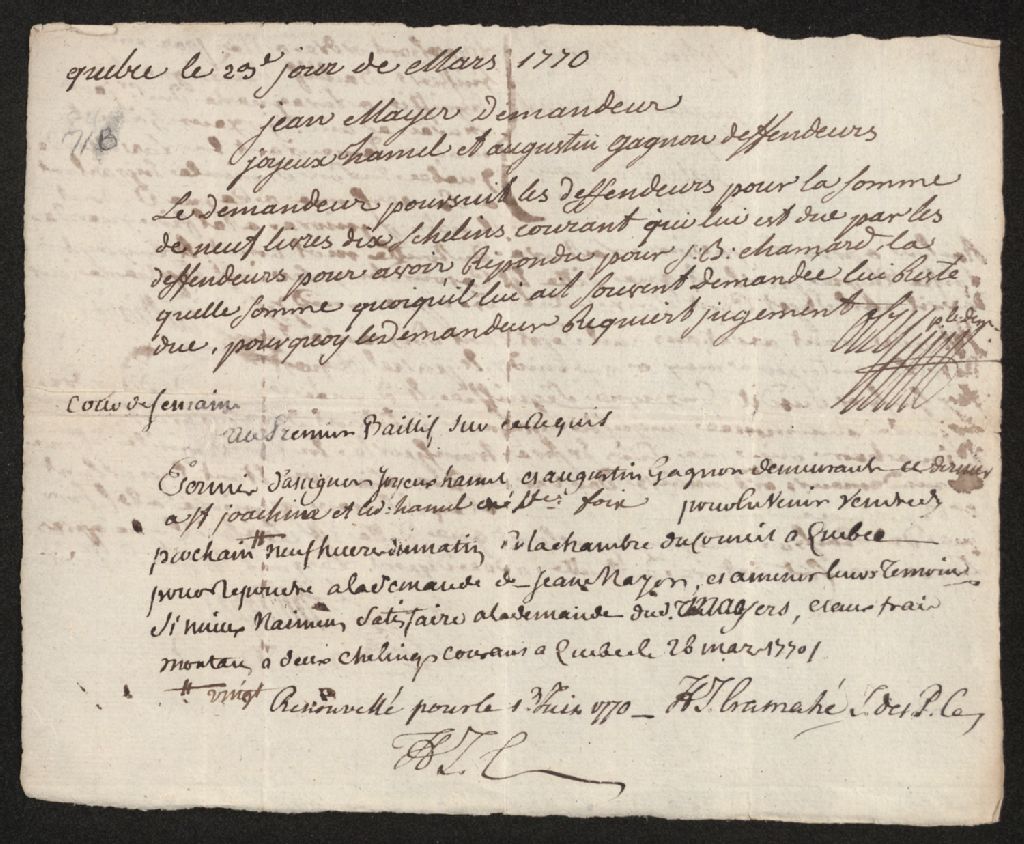 quebec le 23e jour de Mars 1770
71B
jean Mayer Demandeur
joyeux hamel et augustin gagnon deffendeurs
Le demandeur poursuit les deffendeurs pour la somme
de neuf livres dix schelins courant qui lui est due par les
deffendeurs pour avoir Repondu pour J. B. chamard, la
quelle somme quoiqu'il lui ait souvent demandée lui Reste
due, pourquoy le demandeur Requiert jugement
Cour de semaine
Au Premier Baillif sur ce Requis
Donnés d'assigner Joyeux hamel, et augustin Gagnon demeurant ce dernier
a St joachim et led. hamel Ste foix pour La venir vendredi
prochain # neuf heures du matin, En la chambre du Conseil a Quebec
pour Repondre a la demande de Jean Mayer, et amener leurs Temoins
Si mieux Naiment Satisfaire a la demande dud. Mayers, et aux frais
montans a deux chelings courans a Quebec le 28 mar 1770 /
# vingt
Renouvellé pour le 1r Juin 1770 _ H T. Cramahé J. des P. C.
H T. C